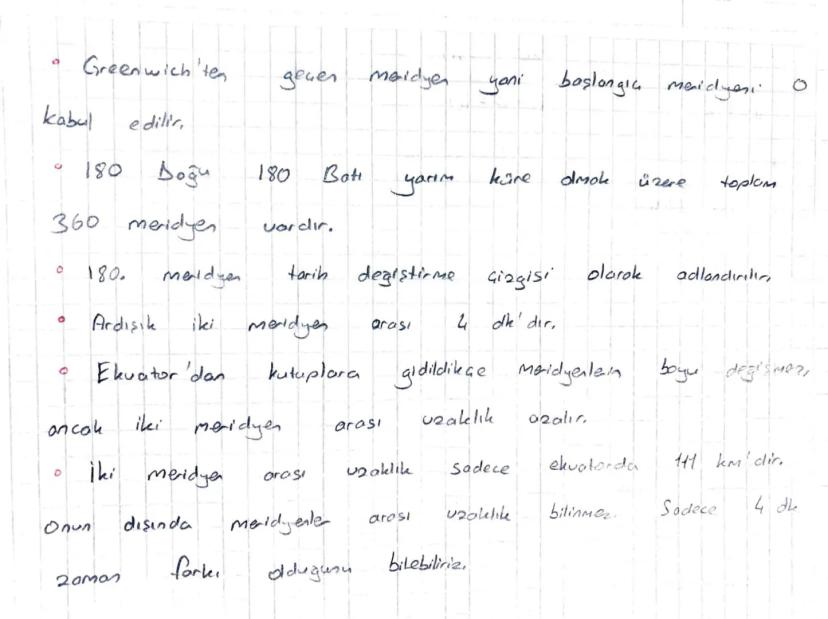 • Greenwich'ten geçen meridyen yani başlangıç meridyeni 0
kabul edilir.
• 180 Doğu 180 Batı yarım küre olmak üzere toplam
360 meridyen vardır.
• 180. meridyen tarih değiştirme çizgisi olarak adlandırılır.
• Ardışık iki meridyen arası 4 dk'dır.
• Ekvator'dan kutuplara gidildikçe meridyenlerin boyu değişmez,
ancak iki meridyen arası uzaklık azalır.
• İki meridyen arası uzaklık sadece ekvatorda 111 km'dir.
Onun dışında meridyenler arası uzaklık bilinmez. Sadece 4 dk
zaman farkı olduğunu bilebiliriz.